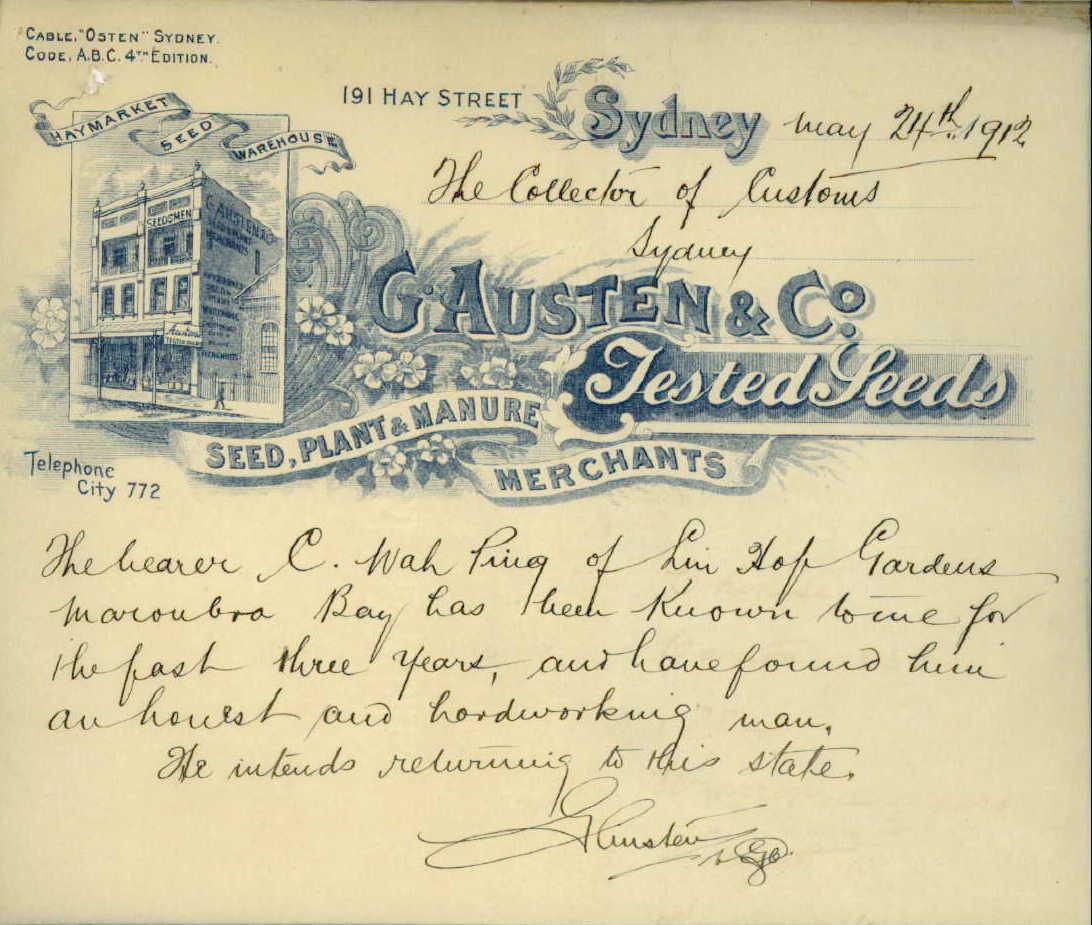 CABLE, "OSTEN" SYDNEY.
CODE, A.B.C. 4TH EDITION.
HAYMARKET SEED WAREHOUSE
SEEDSMEN
191 HAY STREET Sydney May 24th 1912
The Collector of Customs
Sydney
G. AUSTEN & CO.
Tested Seeds
SEED, PLANT & MANURE
MERCHANTS
Telephone
City 772
The bearer C. Wah Ping of Sin Hop Gardens
Maroubra Bay has been known to me for
the past three years, and have found him
an honest and hardworking man.
He intends returning to this state.
G Austen & Co